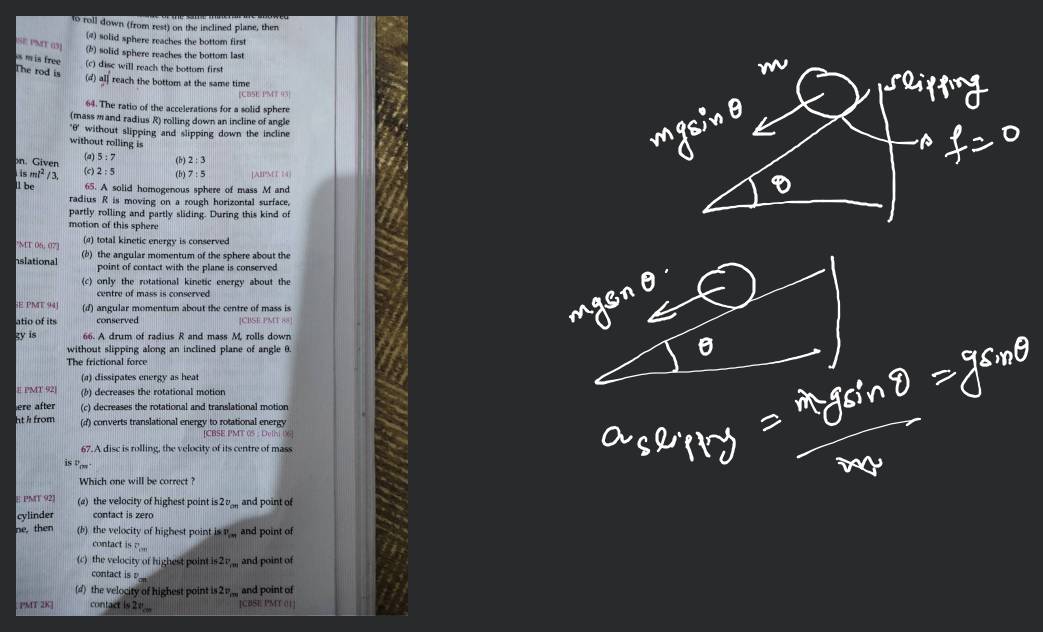 to roll down (from rest) on the inclined plane, then
(a) solid sphere reaches the bottom first
(b) solid sphere reaches the bottom last
(c) disc will reach the bottom first
(d) all reach the bottom at the same time
[CBSE PMT 93]
64. The ratio of the accelerations for a solid sphere
(mass m and radius R) rolling down an incline of angle
'θ' without slipping and slipping down the incline
without rolling is
(a) 5 : 7 (b) 2 : 3
(c) 2 : 5 (b) 7 : 5 [AIPMT 14]
65. A solid homogenous sphere of mass M and
radius R is moving on a rough horizontal surface,
partly rolling and partly sliding. During this kind of
motion of this sphere
(a) total kinetic energy is conserved
(b) the angular momentum of the sphere about the
point of contact with the plane is conserved
(c) only the rotational kinetic energy about the
centre of mass is conserved
(d) angular momentum about the centre of mass is
conserved [CBSE PMT 88]
66. A drum of radius R and mass M, rolls down
without slipping along an inclined plane of angle θ.
The frictional force
(a) dissipates energy as heat
(b) decreases the rotational motion
(c) decreases the rotational and translational motion
(d) converts translational energy to rotational energy
[CBSE PMT 05 ; Delhi 06]
67. A disc is rolling, the velocity of its centre of mass
is v_cm.
Which one will be correct ?
(a) the velocity of highest point is 2v_cm and point of
contact is zero
(b) the velocity of highest point is v_cm and point of
contact is v_cm
(c) the velocity of highest point is 2v_cm and point of
contact is v_cm
(d) the velocity of highest point is 2v_cm and point of
contact is 2v_cm [CBSE PMT 01]
SE PMT 03]
ss m is free
The rod is
on. Given
is ml² /3,
ll be
PMT 06, 07]
nslational
SE PMT 94]
atio of its
gy is
E PMT 92]
ere after
ht h from
E PMT 92]
cylinder
ne, then
PMT 2K]
m
slipping
mgsinθ
f = 0
θ
mgsinθ
θ
a slippy = mgsinθ / m = gsinθ